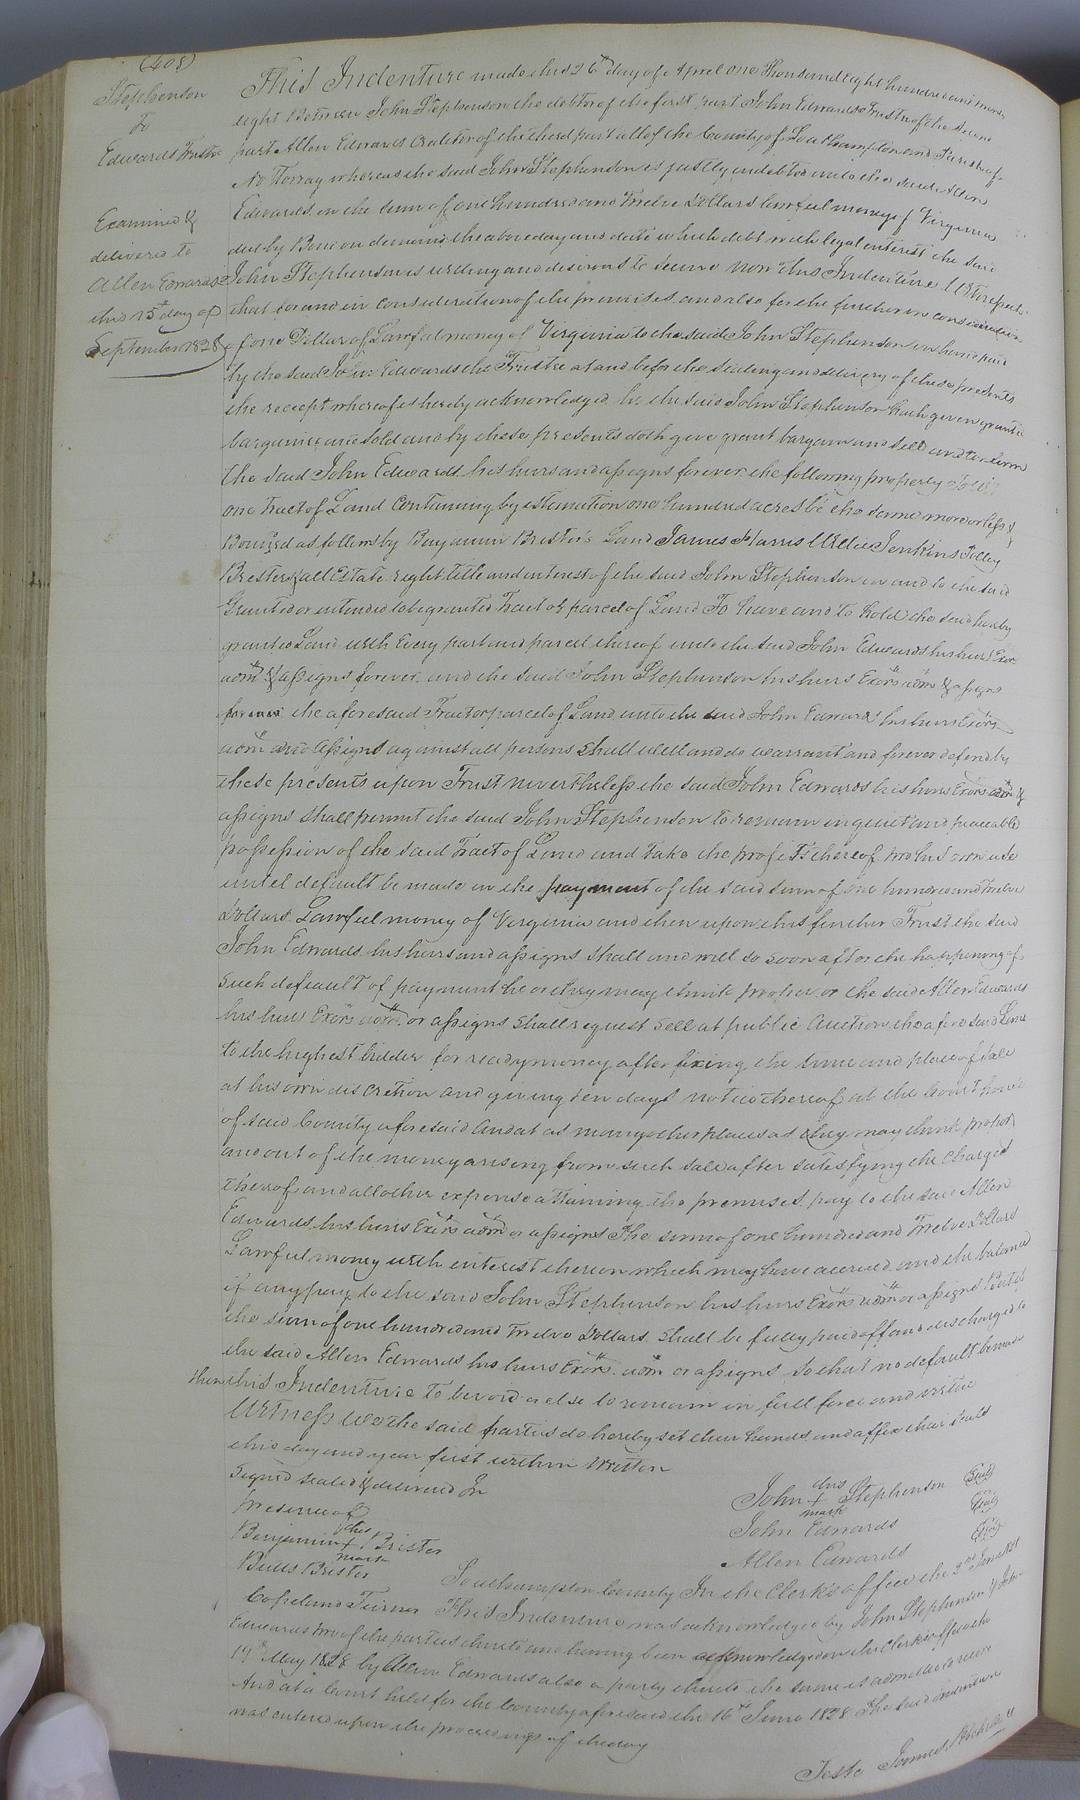 (408)
Stephenson
to
Edwards Trustee
Examined &
delivered to
Allen Edwards
this 15th day of
September 1828
This Indenture made this 26th day of April one Thousand eight hundred and twenty
eight Between John Stephenson the debtor of the first part John Edwards Trustee of the Second
part Allen Edwards Creditor of the third part all of the County of Southampton and Parish of
Nottoway whereas the said John Stephenson is justly indebted unto the said Allen
Edwards in the sum of one hundred and Twelve Dollars lawful money of Virginia
due by Bond on demand the above day and date which debt with legal interest the said
John Stephenson is willing and desirous to secure Now this Indenture Witnesseth
that for and in consideration of the premises and also for the further in consideration
of one Dollar of Lawful money of Virginia to the said John Stephenson in hand paid
by the said John Edwards the Trustee at and before the sealing and delivery of these presents
the receipt whereof is hereby acknowledged he the said John Stephenson hath given granted
bargained and sold and by these presents doth give grant bargain and sell and to
the said John Edwards his heirs and assigns forever the following property
one Tract of Land Containing by estimation one hundred acres be the same more or less &
Bounded as follows by Benjamin Brister's Land James Harris Willie Jenkins
Brister & all Estate right title and interest of the said John Stephenson in and to the said
Granted or intended to be granted Tract or parcel of Land To have and to hold the said hereby
granted Land with Every part and parcel thereof unto the said John Edwards his heirs Exors
adm & assigns forever and the said John Stephenson his heirs Exors adm & assigns
forever the aforesaid Tract or parcel of Land unto the said John Edwards his heirs Exors
adm and assigns against all persons shall well and do warrant and forever defend by
these presents upon Trust nevertheless the said John Edwards his heirs Exors adm &
assigns shall permit the said John Stephenson to remain in quiet and peaceable
possession of the said Tract of Land and take the profits thereof to his own use
until default be made in the payment of the said sum of one hundred and Twelve
Dollars Lawful money of Virginia and then upon this further Trust the said
John Edwards his heirs and assigns shall and will so soon after the happening of
such default of payment he or they may think proper or the said Allen Edwards
his heirs Exors adm or assigns shall request sell at public Auction the aforesaid Land
to the highest bidder for ready money after fixing the time and place of sale
at his own discretion and giving ten days notice thereof at the Court house
of said County aforesaid and at as many other places as they may think proper
and out of the money arising from such sale after satisfying the Charges
thereof and all other expense attaining the premises pay to the said Allen
Edwards his heirs Exors adm or assigns the sum of one hundred and Twelve Dollars
Lawful money with interest thereon which may have accrued and the balance
if any pay to the said John Stephenson his heirs Exors adm or assigns But if
the sum of one hundred and Twelve Dollars shall be fully paid off and discharged to
the said Allen Edwards his heirs Exors adm or assigns so that no default be made
then this Indenture to be void or else to remain in full force and virtue
Witness we the said parties do hereby set their hands and affix their seals
this day and year first within Written
Signed sealed & delivered In
presence of
his
Benjamin + Brister
mark
Brister
Copeland Turner
his
John + Stephenson (Seal)
mark
John Edwards (Seal)
Allen Edwards (Seal)
Southampton County In the Clerk's office the 2nd June 1828
This Indenture was acknowledged by John Stephenson & John
Edwards two of the parties thereto and having been acknowledged in the Clerk's office the
19th May 1828 by Allen Edwards also a party thereto the same is admitted to record
And at a Court held for the County aforesaid the 16th June 1828 The said indenture
was entered upon the proceedings of the day
Teste James Rochelle